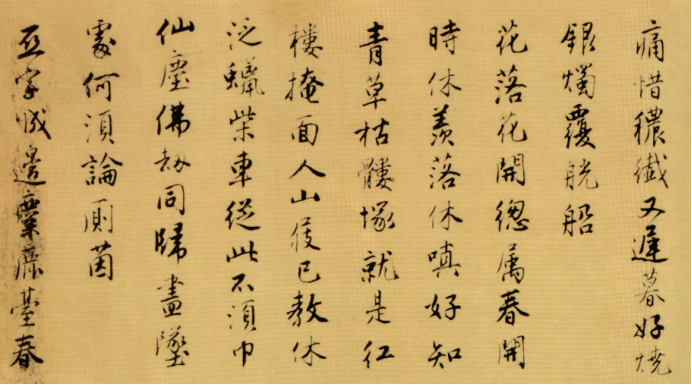 痛惜穠纖又遲暮好燒
銀燭覆觥船
花落花開總屬春開
時休羨落休嗔好知
青草枯髏塚就是紅
樓掩面人山屐已教休
泛蠟柴車從此不須巾
仙塵佛劫同歸盡墜
處何須論厠茵
亞字城邊麋麓臺春